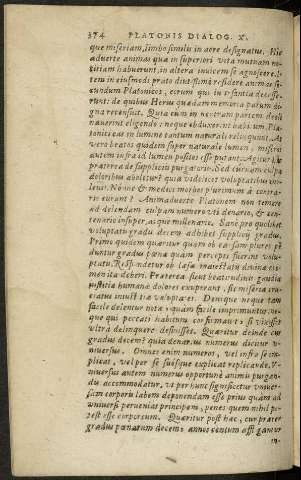 374 PLATONIS DIALOG. X.
que miseriam, limbo similis in aere designatur. Hic
adverte animas quæ in superiori vita mutuam no-
titiam habuerunt, in altera invicem se agnoscere. I-
tem in eiusmodi prato diutissimè residere animas se-
cundum Platonicos, eorum qui in infantia decesse-
runt: de quibus Herus quædam memoria parum di-
gna recensuit. Quia cum in neutram partem decli-
naverint eligendo: neque habitum. Pla-
tonici eas in lumine tantum naturali relinquunt. At
vero beatos quidem super naturale lumen, miseros
autem infra id lumen positos esse putant. Agitur hîc
præterea de suppliciis purgatoriis. Sed cur eam culpa
doloribus aboletur? quia videlicet voluptatibus
. Nónne & medici morbos plurimum à contra-
rio curant? Animadverte Platonem non temere
ad delendam culpam numero uti denario, & cen-
tenario insuper, atque millenario. Sane pro quolibet
voluptatis gradu decem adhibet supplicij gradus.
Primo quidem quæritur quam ob causam plures
duntur gradus pœnæ quam percepti fuerint volu-
ptatis. Respondetur ob læsam maiestatem divinam
merita deberi. Præterea sicut beatitudinis gaudia
iustitiæ humanæ dolores exuperant, sic miseriæ cru-
ciatus iniustitiæ voluptates. Denique neque tam
facile delentur nota quam facile imprimuntur: ne-
que qui peccati habitum confirmavit, si vixisset
ultra delinquere desiisset. Quæritur deinde cur
gradus decem? quia denarius numerus dicitur v-
niversus. Omnes enim numeros, vel infra se im-
plicat, vel per se suosque explicat replicando. V-
niversus autem numerus opportunè animis purgan-
dis accommodatur, ut per hunc significetur univer-
sam corporis labem deponendam esse prius quam ad
universi perveniat principem, penes quem nihil po-
test esse corporeum. Quæritur post hac, cur præter
gradus pœnarum decem, annos centum assignatur
in-